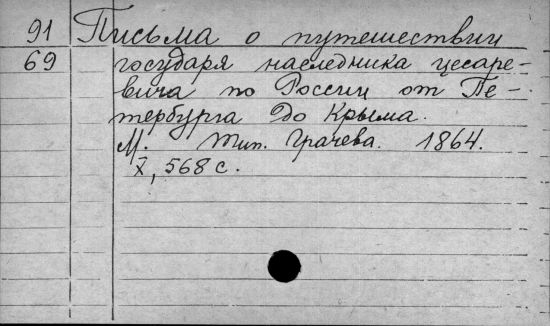 91 Письма о путешествии
69 государя наследника цесаре-
вича по России от Пе-
тербурга до Крыма.
М. Тип. Грачева. 1864.
X, 568 с.